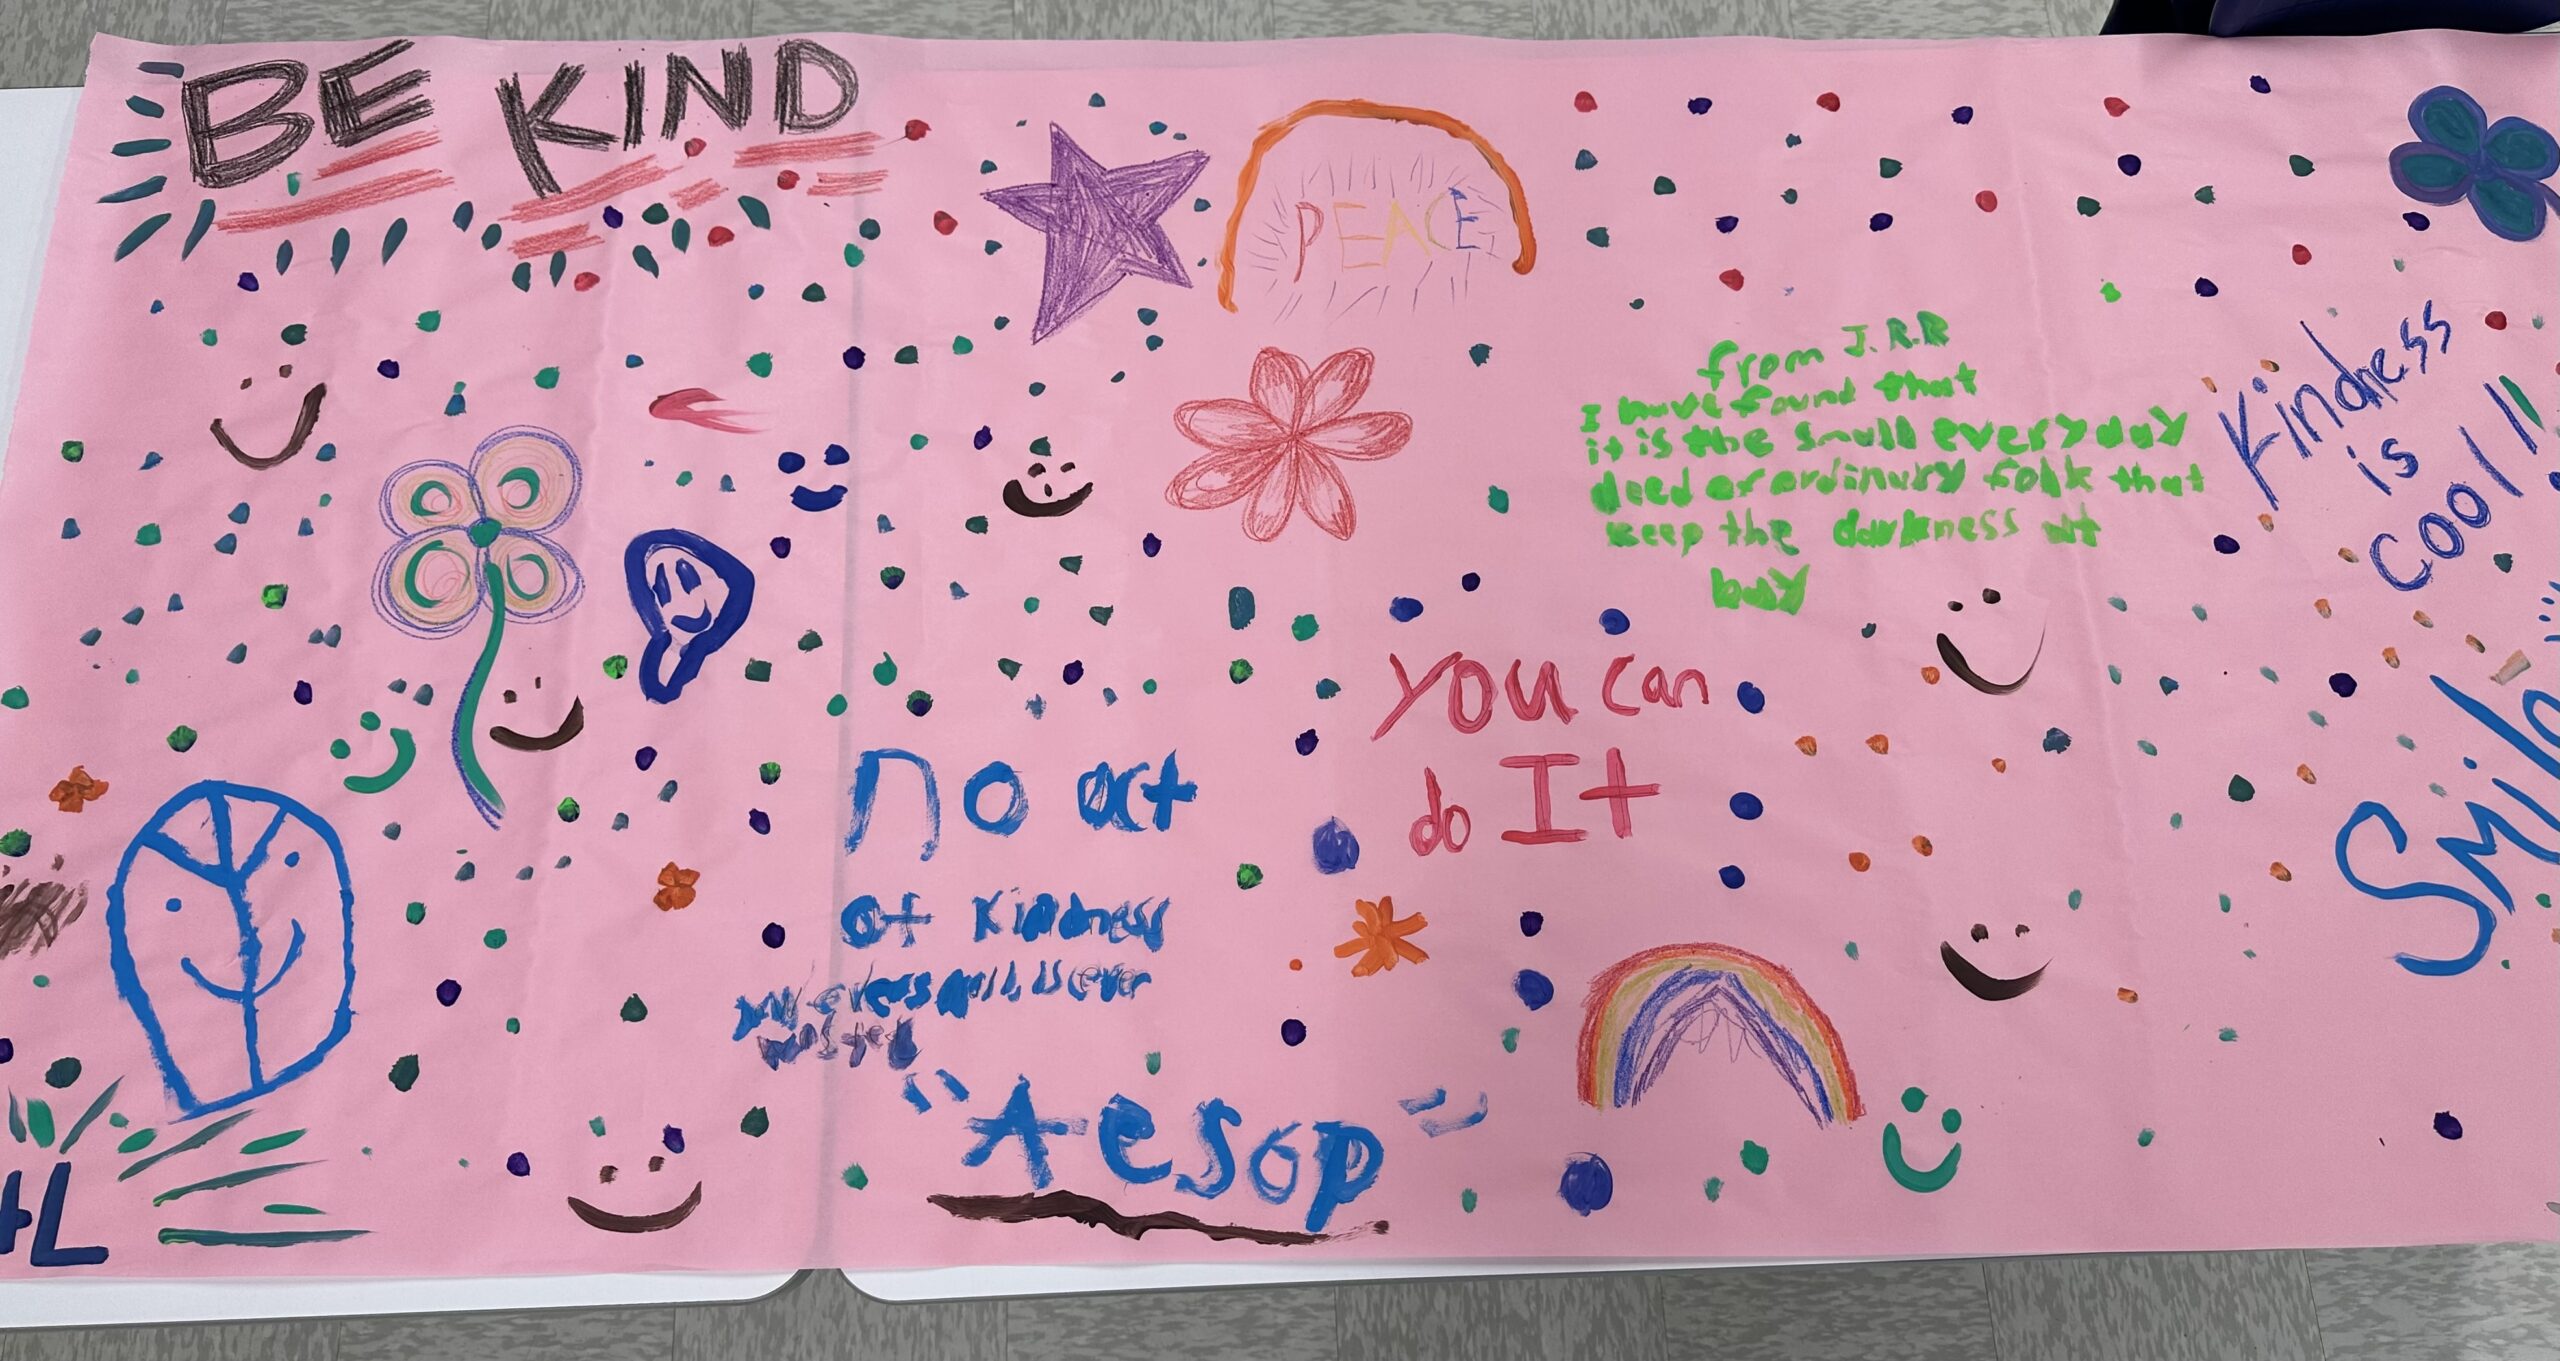 BE KIND
PEACE
from J.R.R
I have found that
it is the small everyday
deed of ordinary folk that
keep the darkness at
bay
Kindness
is
cool!!
You can
do It
Smile
no act
of kindness
ever
wasted
"Aesop"